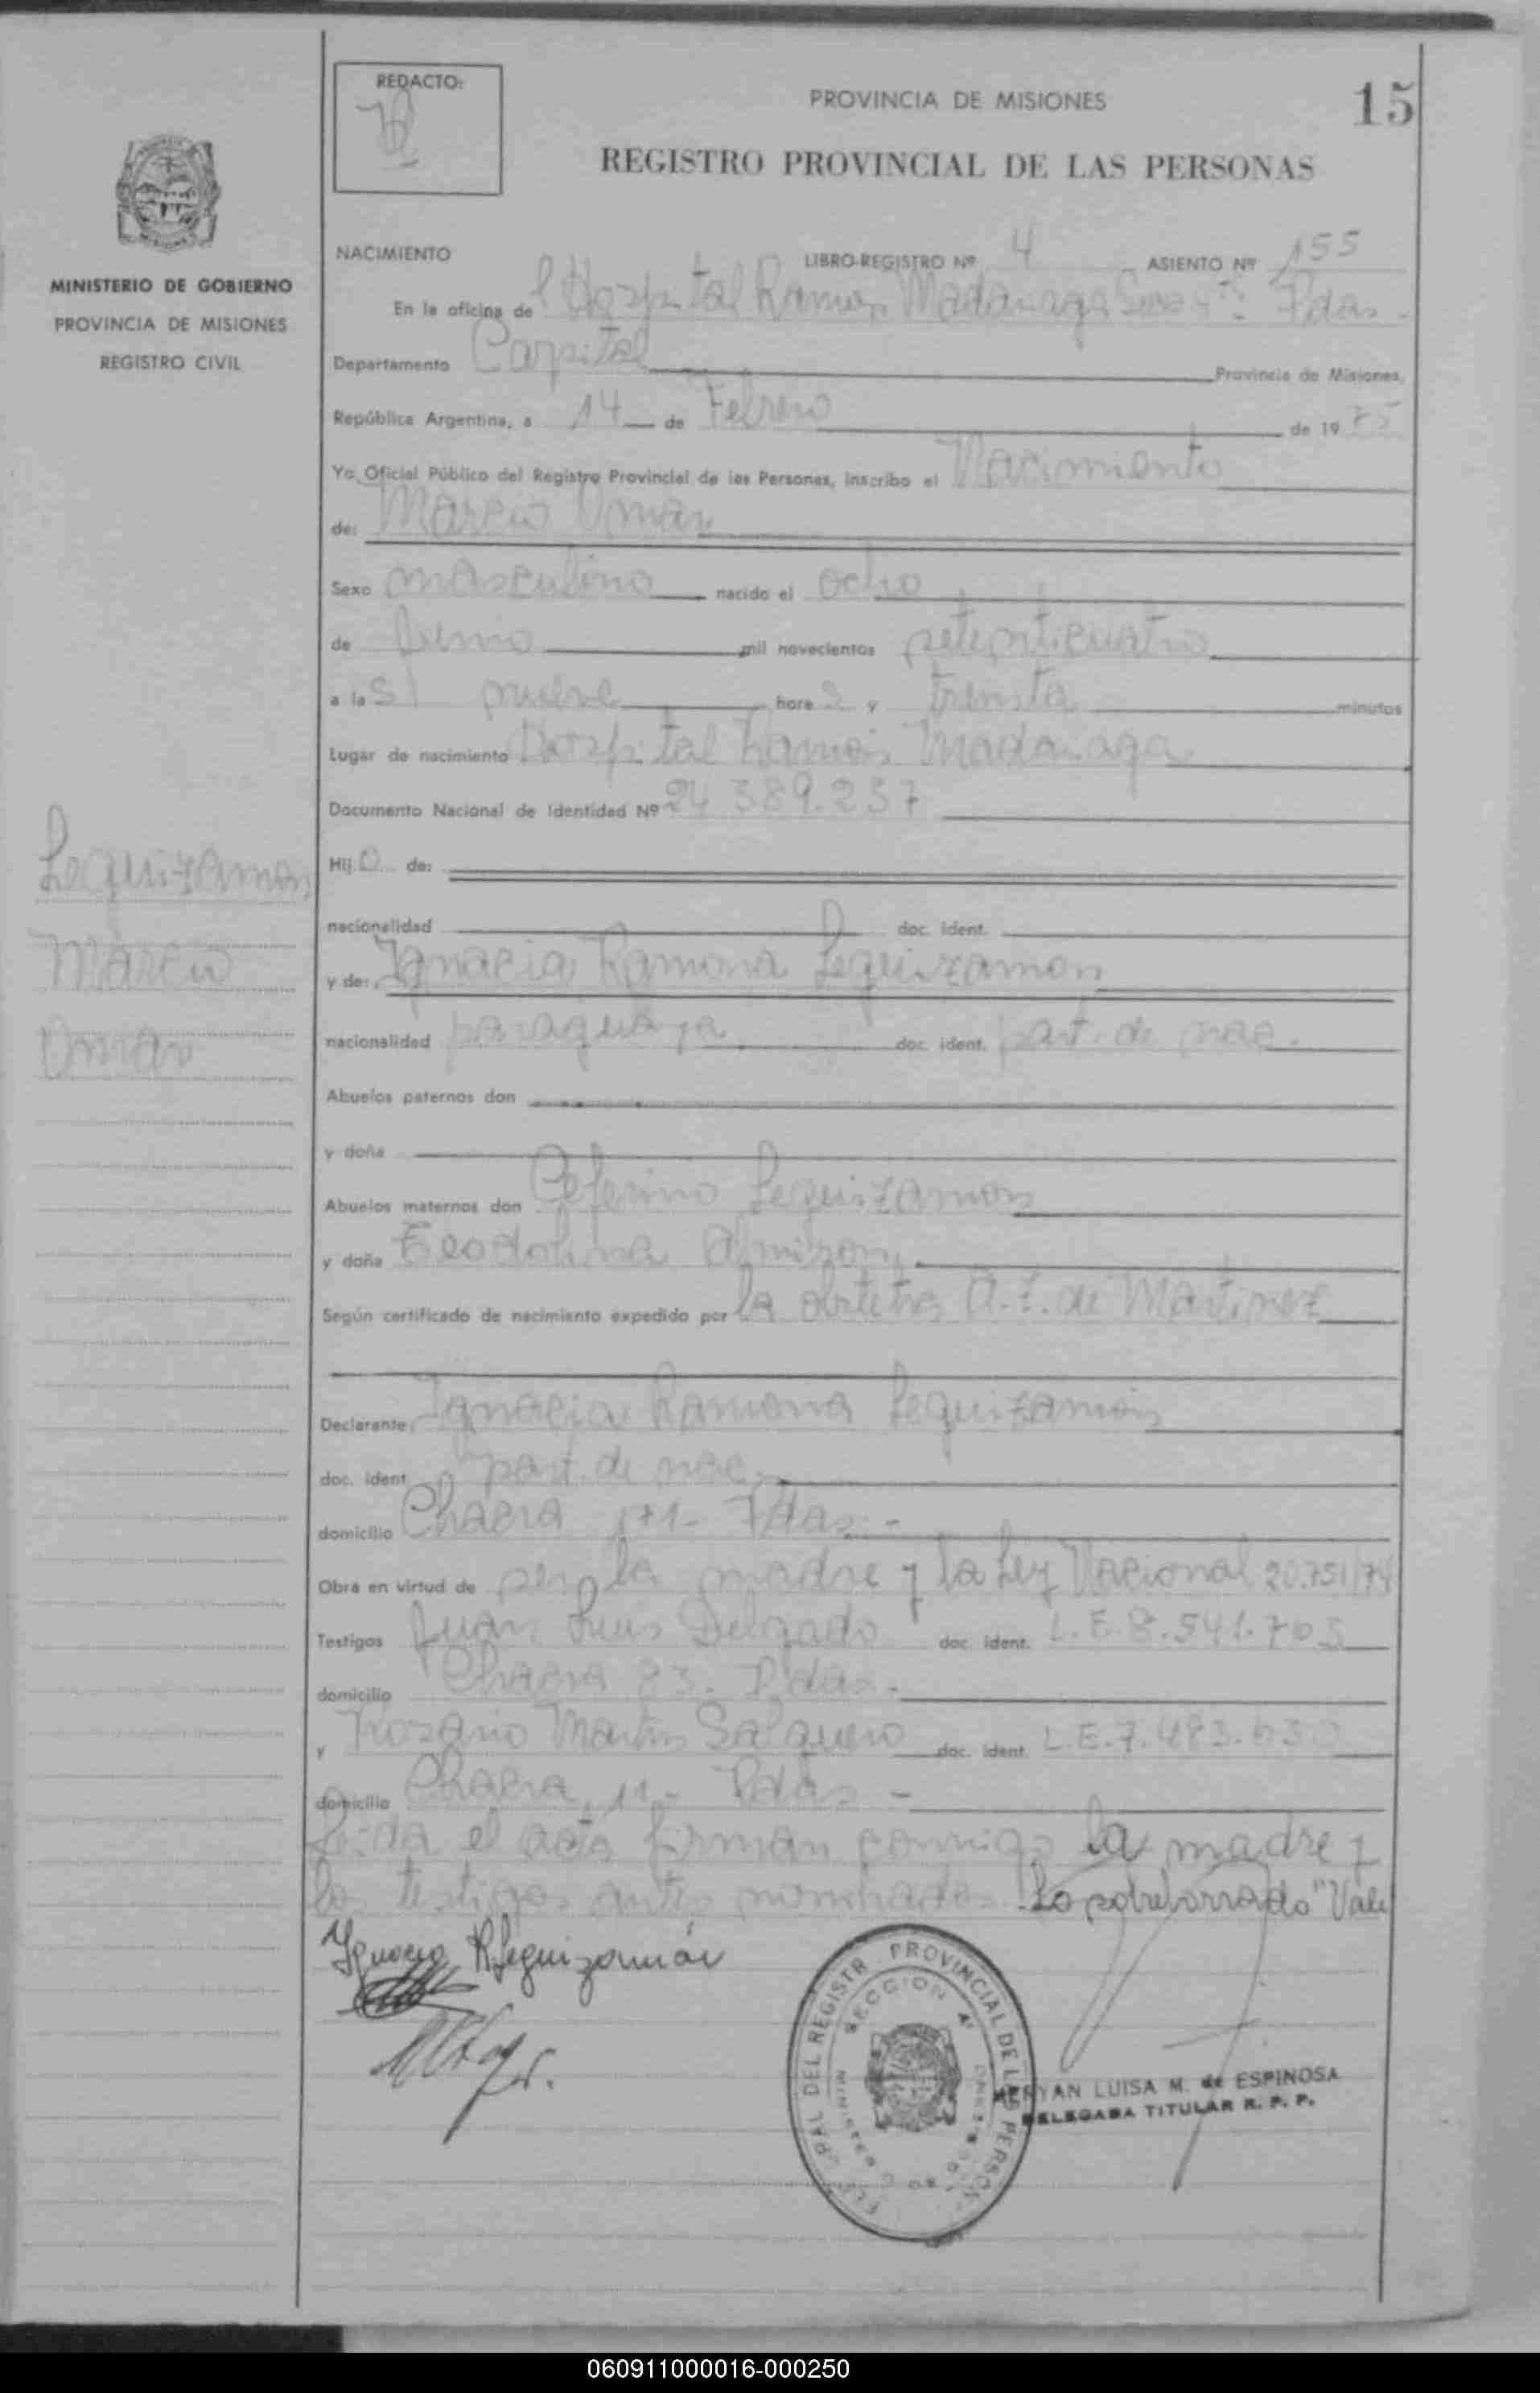 REDACTO:
PROVINCIA DE MISIONES
15
REGISTRO PROVINCIAL DE LAS PERSONAS
MINISTERIO DE GOBIERNO
PROVINCIA DE MISIONES
REGISTRO CIVIL
NACIMIENTO LIBRO-REGISTRO Nº 4 ASIENTO Nº 155
En la oficina de Hospital Ramón Madariaga Pdas.-
Departamento Capital Provincia de Misiones,
República Argentina, a 14 de Febrero de 1975
Yo, Oficial Público del Registro Provincial de las Personas, inscribo el Nacimiento
de: Marcio Omar
Sexo masculino nacido el ocho
de Junio mil novecientos setenticuatro
a las nueve horas y treinta minutos
Lugar de nacimiento Hospital Ramón Madariaga
Documento Nacional de Identidad Nº 24 389.237
Leguizamon
Marcio
Omar
Hijo de:
nacionalidad doc. ident.
y de: Ignacia Ramona Leguizamon
nacionalidad paraguaya doc. ident. part. de nac.
Abuelos paternos don
y doña
Abuelos maternos don Ceferino Leguizamon
y doña Teodolina Almiron
Según certificado de nacimiento expedido por la obstetra A. Z. de Martinez
Declarante: Ignacia Ramona Leguizamón
doc. ident. part. de nac.
domicilio Chacra 171- Pdas.-
Obra en virtud de ser la madre y la Ley Nacional 20.751/74
Testigos Juan Luis Delgado doc. ident. L.E. 8.541.703
domicilio Chacra 83. Pdas.-
y Rosario Martin Salguero doc. ident. L.E. 7.483.630
domicilio Chacra 11- Pdas -
Leida el acta firman conmigo la madre y
los testigos antes nombrados. "Lo sobreborrado" Vale
Ignacia R Leguizamón
DEL REGISTR. PROVINCIAL DE LAS PERSO
SECCION 4ª
MERYAN LUISA M. de ESPINOSA
DELEGADA TITULAR R. P. P.
060911000016-000250